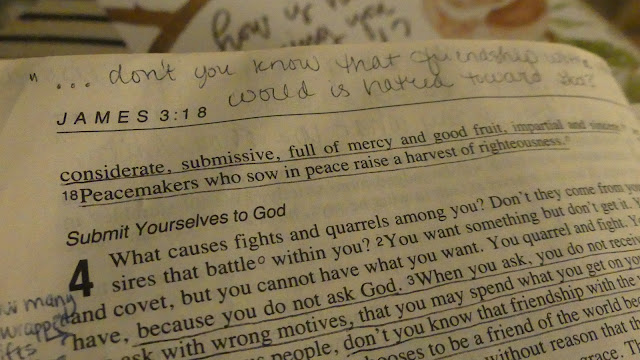 how is
you
"... don't you know that friendship with
world is hatred toward God?
JAMES 3:18
considerate, submissive, full of mercy and good fruit, impartial and sincere.
18Peacemakers who sow in peace raise a harvest of righteousness.
Submit Yourselves to God
4 What causes fights and quarrels among you? Don't they come from
sires that battle within you? 2You want something but don't get it.
and covet, but you cannot have what you want. You quarrel and fight.
have, because you do not ask God. 3When you ask, you do not
ask with wrong motives, that you may spend what you get on
people, don't you know that friendship with the
chooses to be a friend of the world
without reason that
grace.
many
wrapped